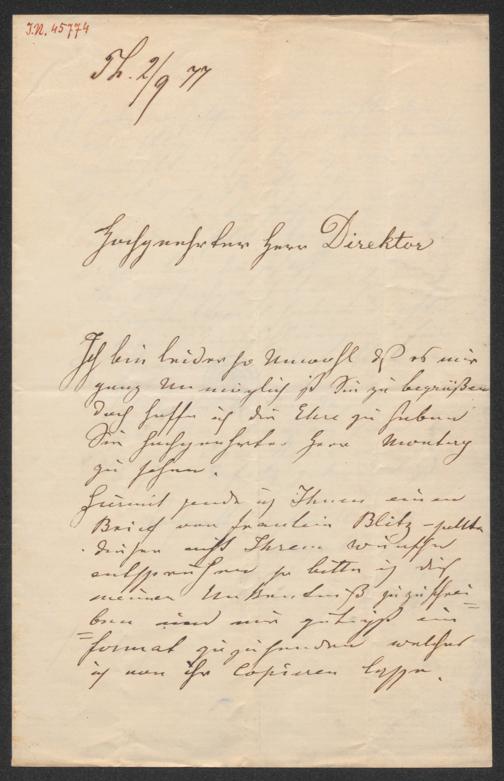 I.N. 45774
Th. 2/9 77
Hochgeehrter Herr Direktor
Ich bin leider so Unwohl dß es mir
ganz Unmöglich ist Sie zu begrüßen
doch hoffe ich die Ehre zu haben
Sie hochgeehrter Herr Montag
zu sehen.
Hiermit sende ich Ihnen einen
Brief von Fräulein Blitz – sollte
dieser nicht Ihrem wunsche
entsprechen so bitte ich dies
meiner Unkentniß zuzuschrei=
ben und mir gütigst ein
=format zuzusenden welches
ich von ihr Copieren lasse.